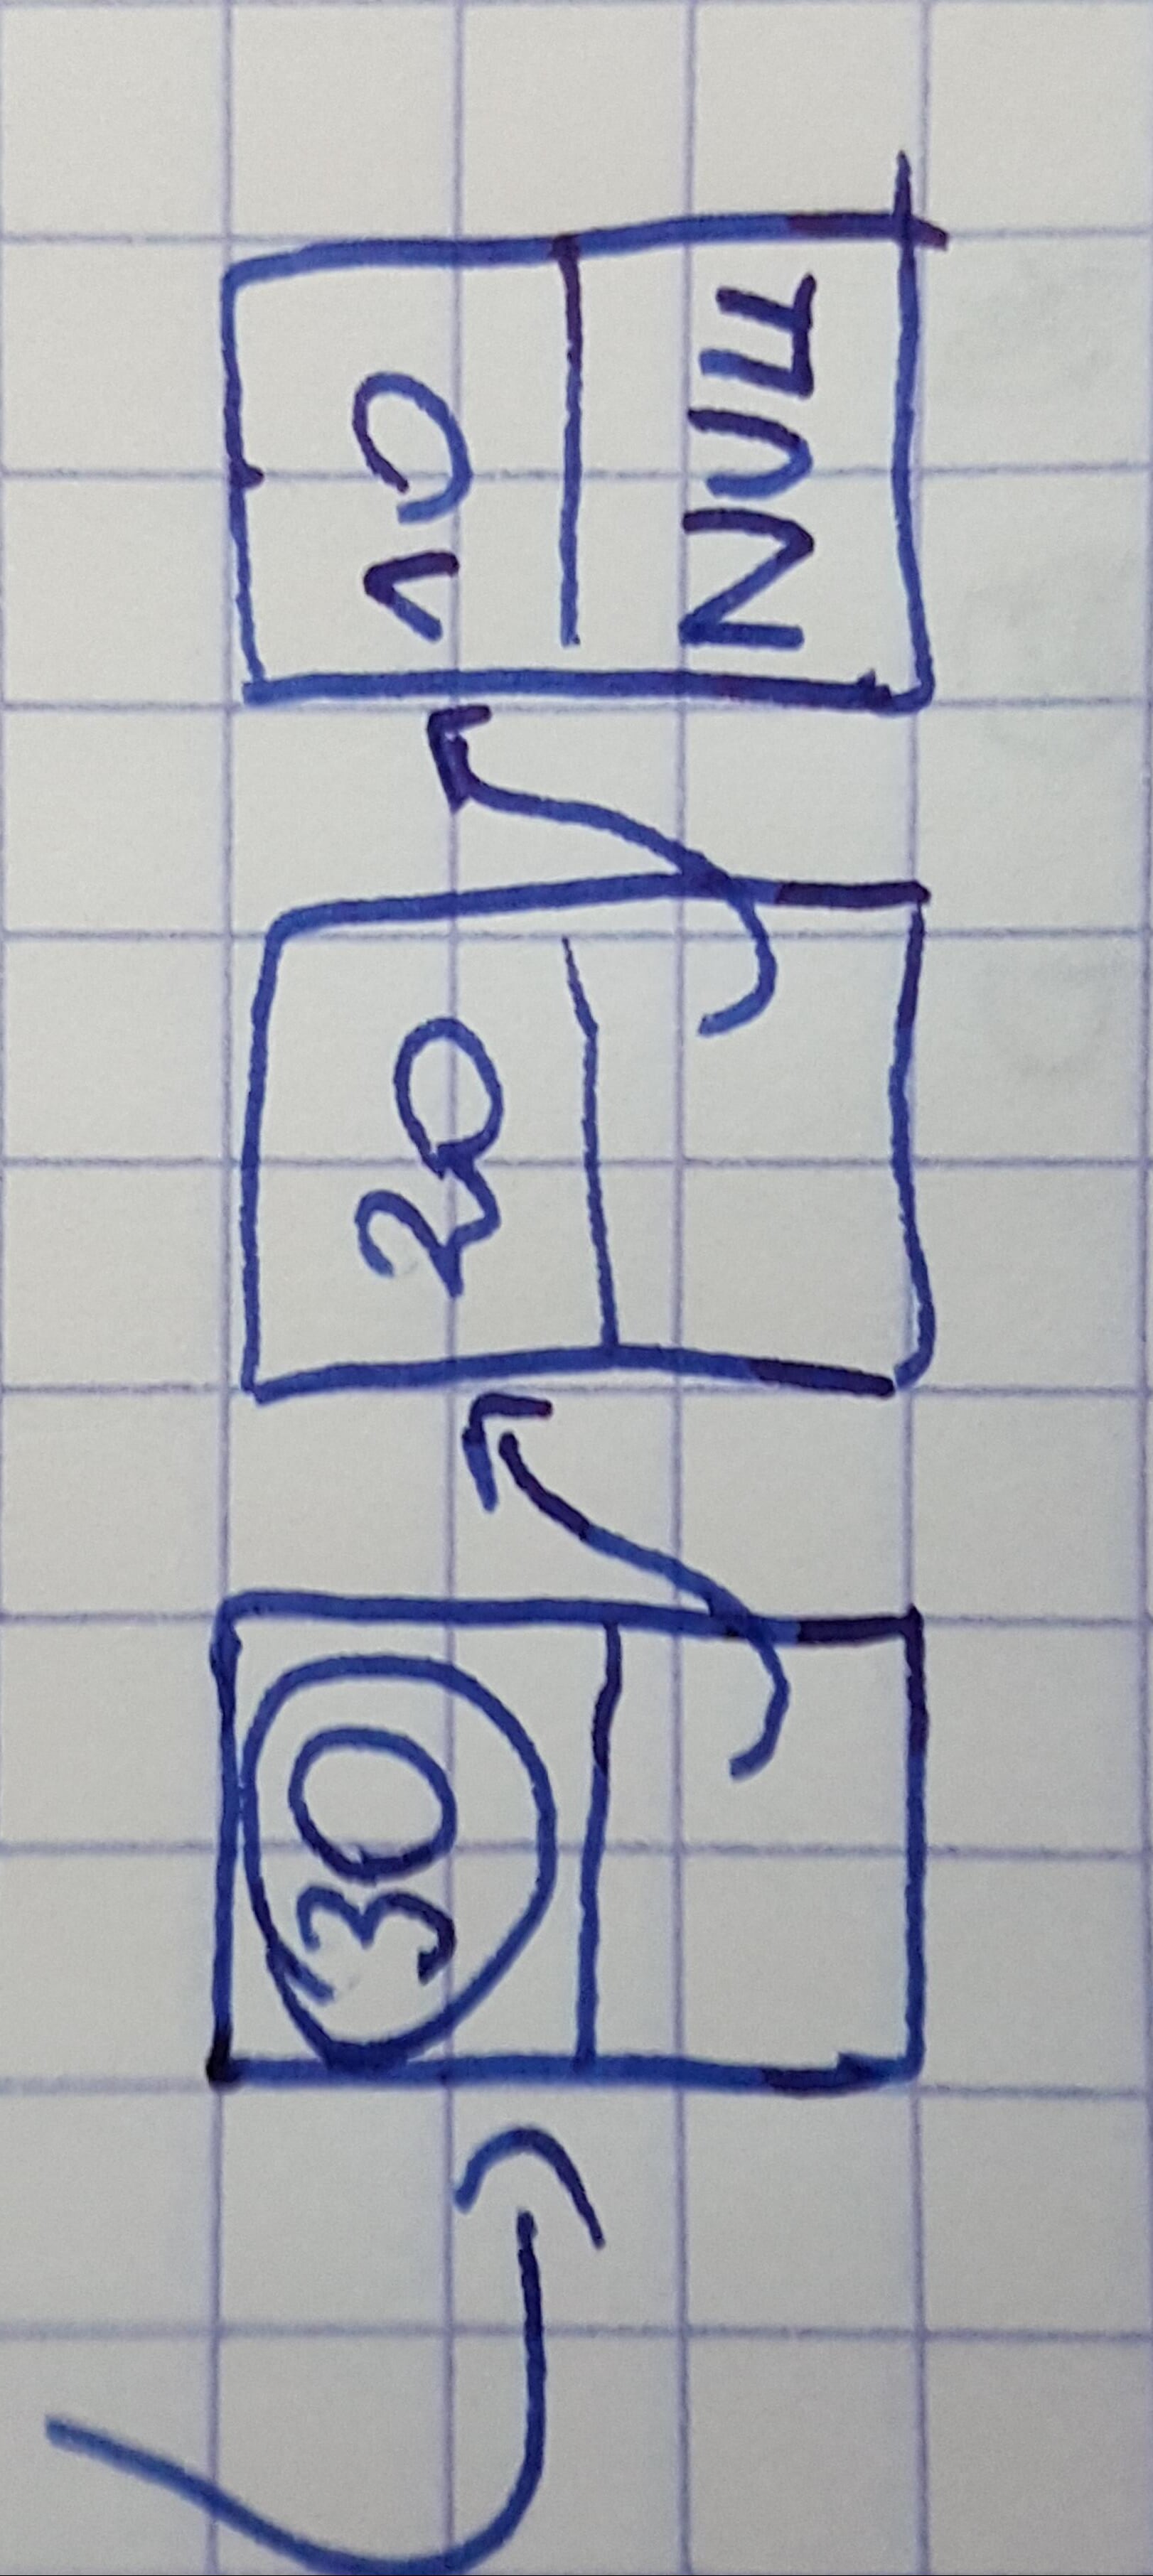 30 20 10
NULL